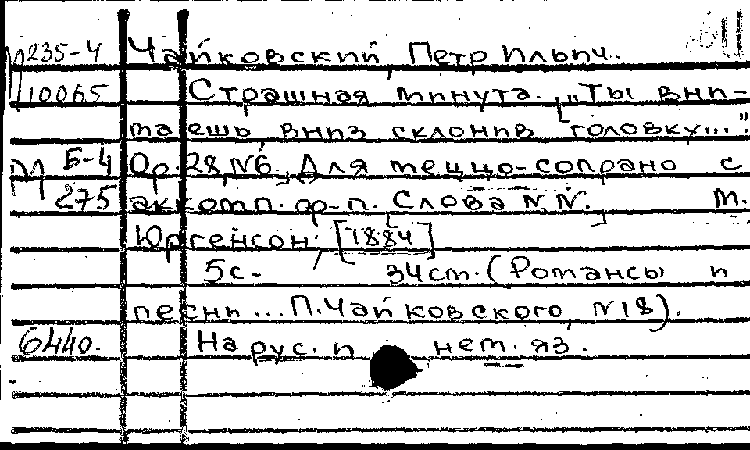 М235-4 Чайковский, Петр Ильич.
10065 Страшная минута. [„Ты вни-
маешь, вниз склонив головку..."]
М Б-4 Op. 28, №6. Для меццо-сопрано с
275 аккомп. ф-п. Слова [N.N.] М.
Юргенсон, [1884]
5с. 34см. (Романсы и
песни... П. Чайковского, №18).
6440. На рус. и нем. яз.